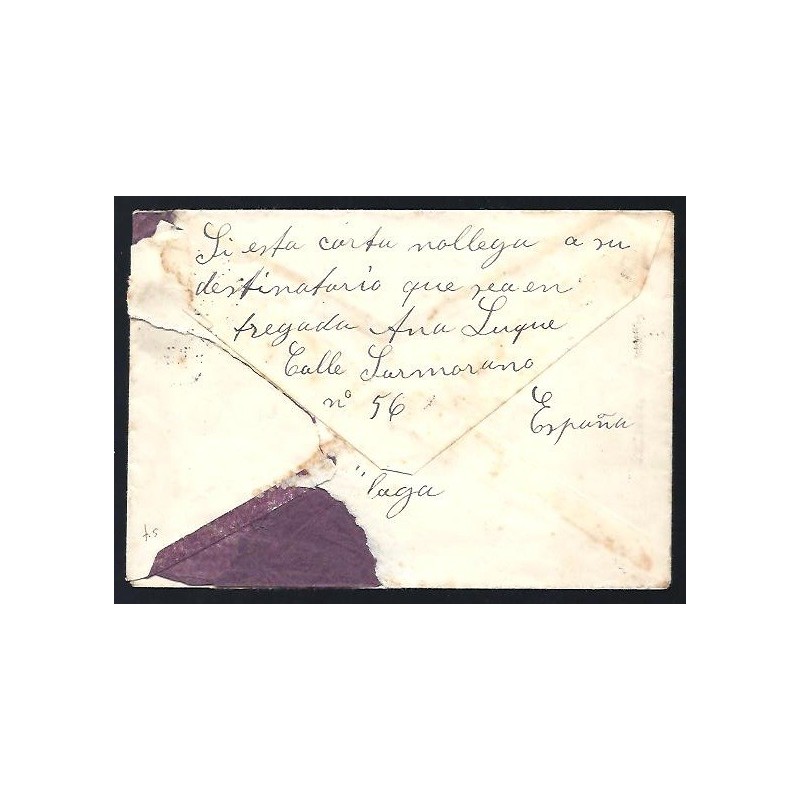 Si esta carta nollega a su
destinatario que sea en
tregada Ana Luque
Calle Sarmorano
nº 56
España
laga